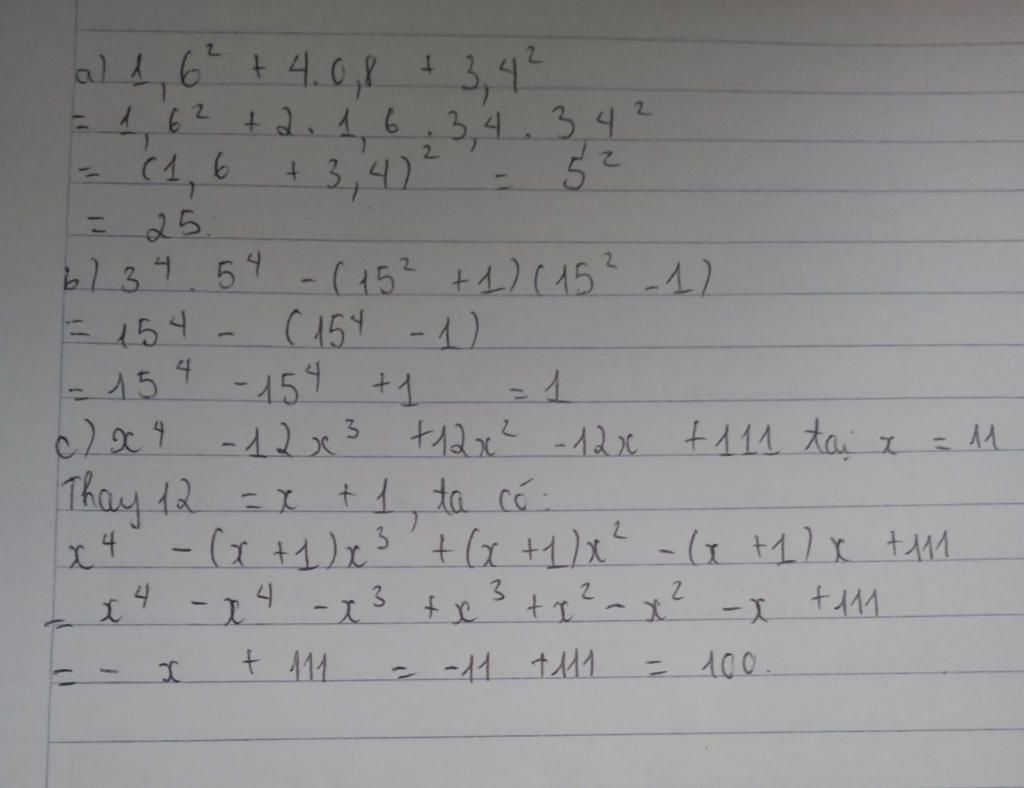 a) 1,6² + 4.0,8 + 3,4²
= 1,6² + 2. 1,6 . 3,4 . 3,4²
= (1,6 + 3,4)² = 5²
= 25.
b) 3⁴ . 5⁴ - (15² + 1)(15² - 1)
= 15⁴ - (15⁴ - 1)
= 15⁴ - 15⁴ + 1 = 1
c) x⁴ - 12x³ + 12x² - 12x + 111 tại x = 11
Thay 12 = x + 1, ta có:
x⁴ - (x + 1)x³ + (x + 1)x² - (x + 1)x + 111
= x⁴ - x⁴ - x³ + x³ + x² - x² - x + 111
= - x + 111 = -11 + 111 = 100.